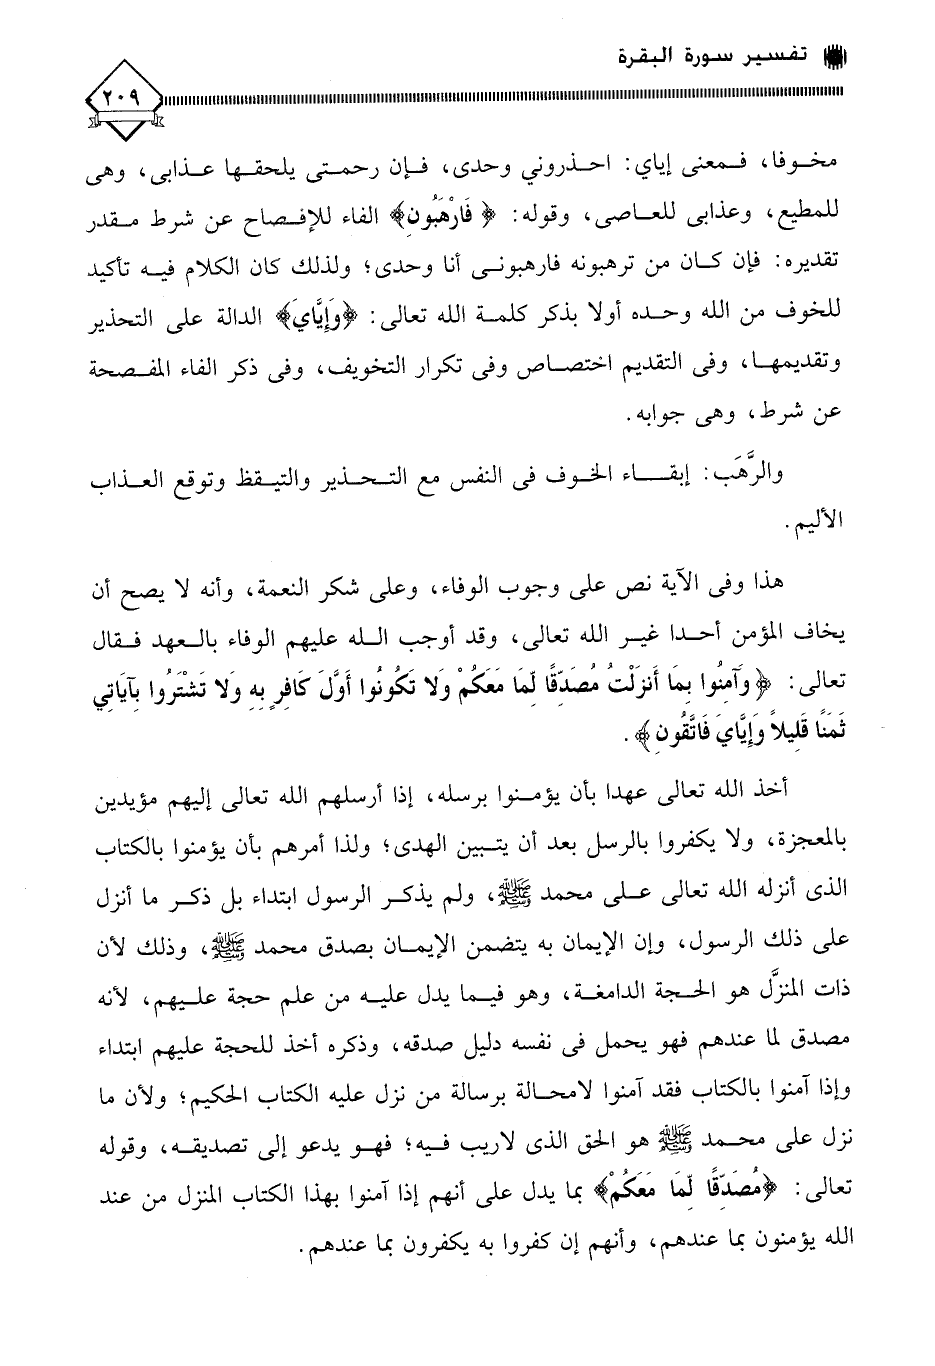 تفسير سورة البقرة
٢٠٩
مخوفا، فمعنى إياي: احذروني وحدى، فإن رحمتى يلحقها عذابى، وهى
للمطيع، وعذابى للعاصى، وقوله: ﴿ فَارْهَبُونِ﴾ الفاء للإفصاح عن شرط مقدر
تقديره: فإن كان من ترهبونه فارهبونى أنا وحدى؛ ولذلك كان الكلام فيه تأكيد
للخوف من الله وحده أولا بذكر كلمة الله تعالى: ﴿وَإِيَّايَ﴾ الدالة على التحذير
وتقديمها، وفى التقديم اختصاص وفى تكرار التخويف، وفى ذكر الفاء المفصحة
عن شرط، وهى جوابه.
والرَّهَب: إبقاء الخوف فى النفس مع التحذير والتيقظ وتوقع العذاب
الأليم.
هذا وفى الآية نص على وجوب الوفاء، وعلى شكر النعمة، وأنه لا يصح أن
يخاف المؤمن أحدا غير الله تعالى، وقد أوجب الله عليهم الوفاء بالعهد فقال
تعالى: ﴿ وَآمِنُوا بِمَا أَنزَلْتُ مُصَدِّقًا لِّمَا مَعَكُمْ وَلا تَكُونُوا أَوَّلَ كَافِرٍ بِهِ وَلا تَشْتَرُوا بِآيَاتِي
ثَمَنًا قَلِيلاً وَإِيَّايَ فَاتَّقُونِ﴾.
أخذ الله تعالى عهدا بأن يؤمنوا برسله، إذا أرسلهم الله تعالى إليهم مؤيدين
بالمعجزة، ولا يكفروا بالرسل بعد أن يتبين الهدى؛ ولذا أمرهم بأن يؤمنوا بالكتاب
الذى أنزله الله تعالى على محمد ﷺ، ولم يذكر الرسول ابتداء بل ذكر ما أنزل
على ذلك الرسول، وإن الإيمان به يتضمن الإيمان بصدق محمد ﷺ، وذلك لأن
ذات المنزَّل هو الحجة الدامغة، وهو فيما يدل عليه من علم حجة عليهم، لأنه
مصدق لما عندهم فهو يحمل فى نفسه دليل صدقه، وذكره أخذ للحجة عليهم ابتداء
وإذا آمنوا بالكتاب فقد آمنوا لامحالة برسالة من نزل عليه الكتاب الحكيم؛ ولأن ما
نزل على محمد ﷺ هو الحق الذى لاريب فيه؛ فهو يدعو إلى تصديقه، وقوله
تعالى: ﴿مُصَدِّقًا لِّمَا مَعَكُمْ﴾ بما يدل على أنهم إذا آمنوا بهذا الكتاب المنزل من عند
الله يؤمنون بما عندهم، وأنهم إن كفروا به يكفرون بما عندهم.